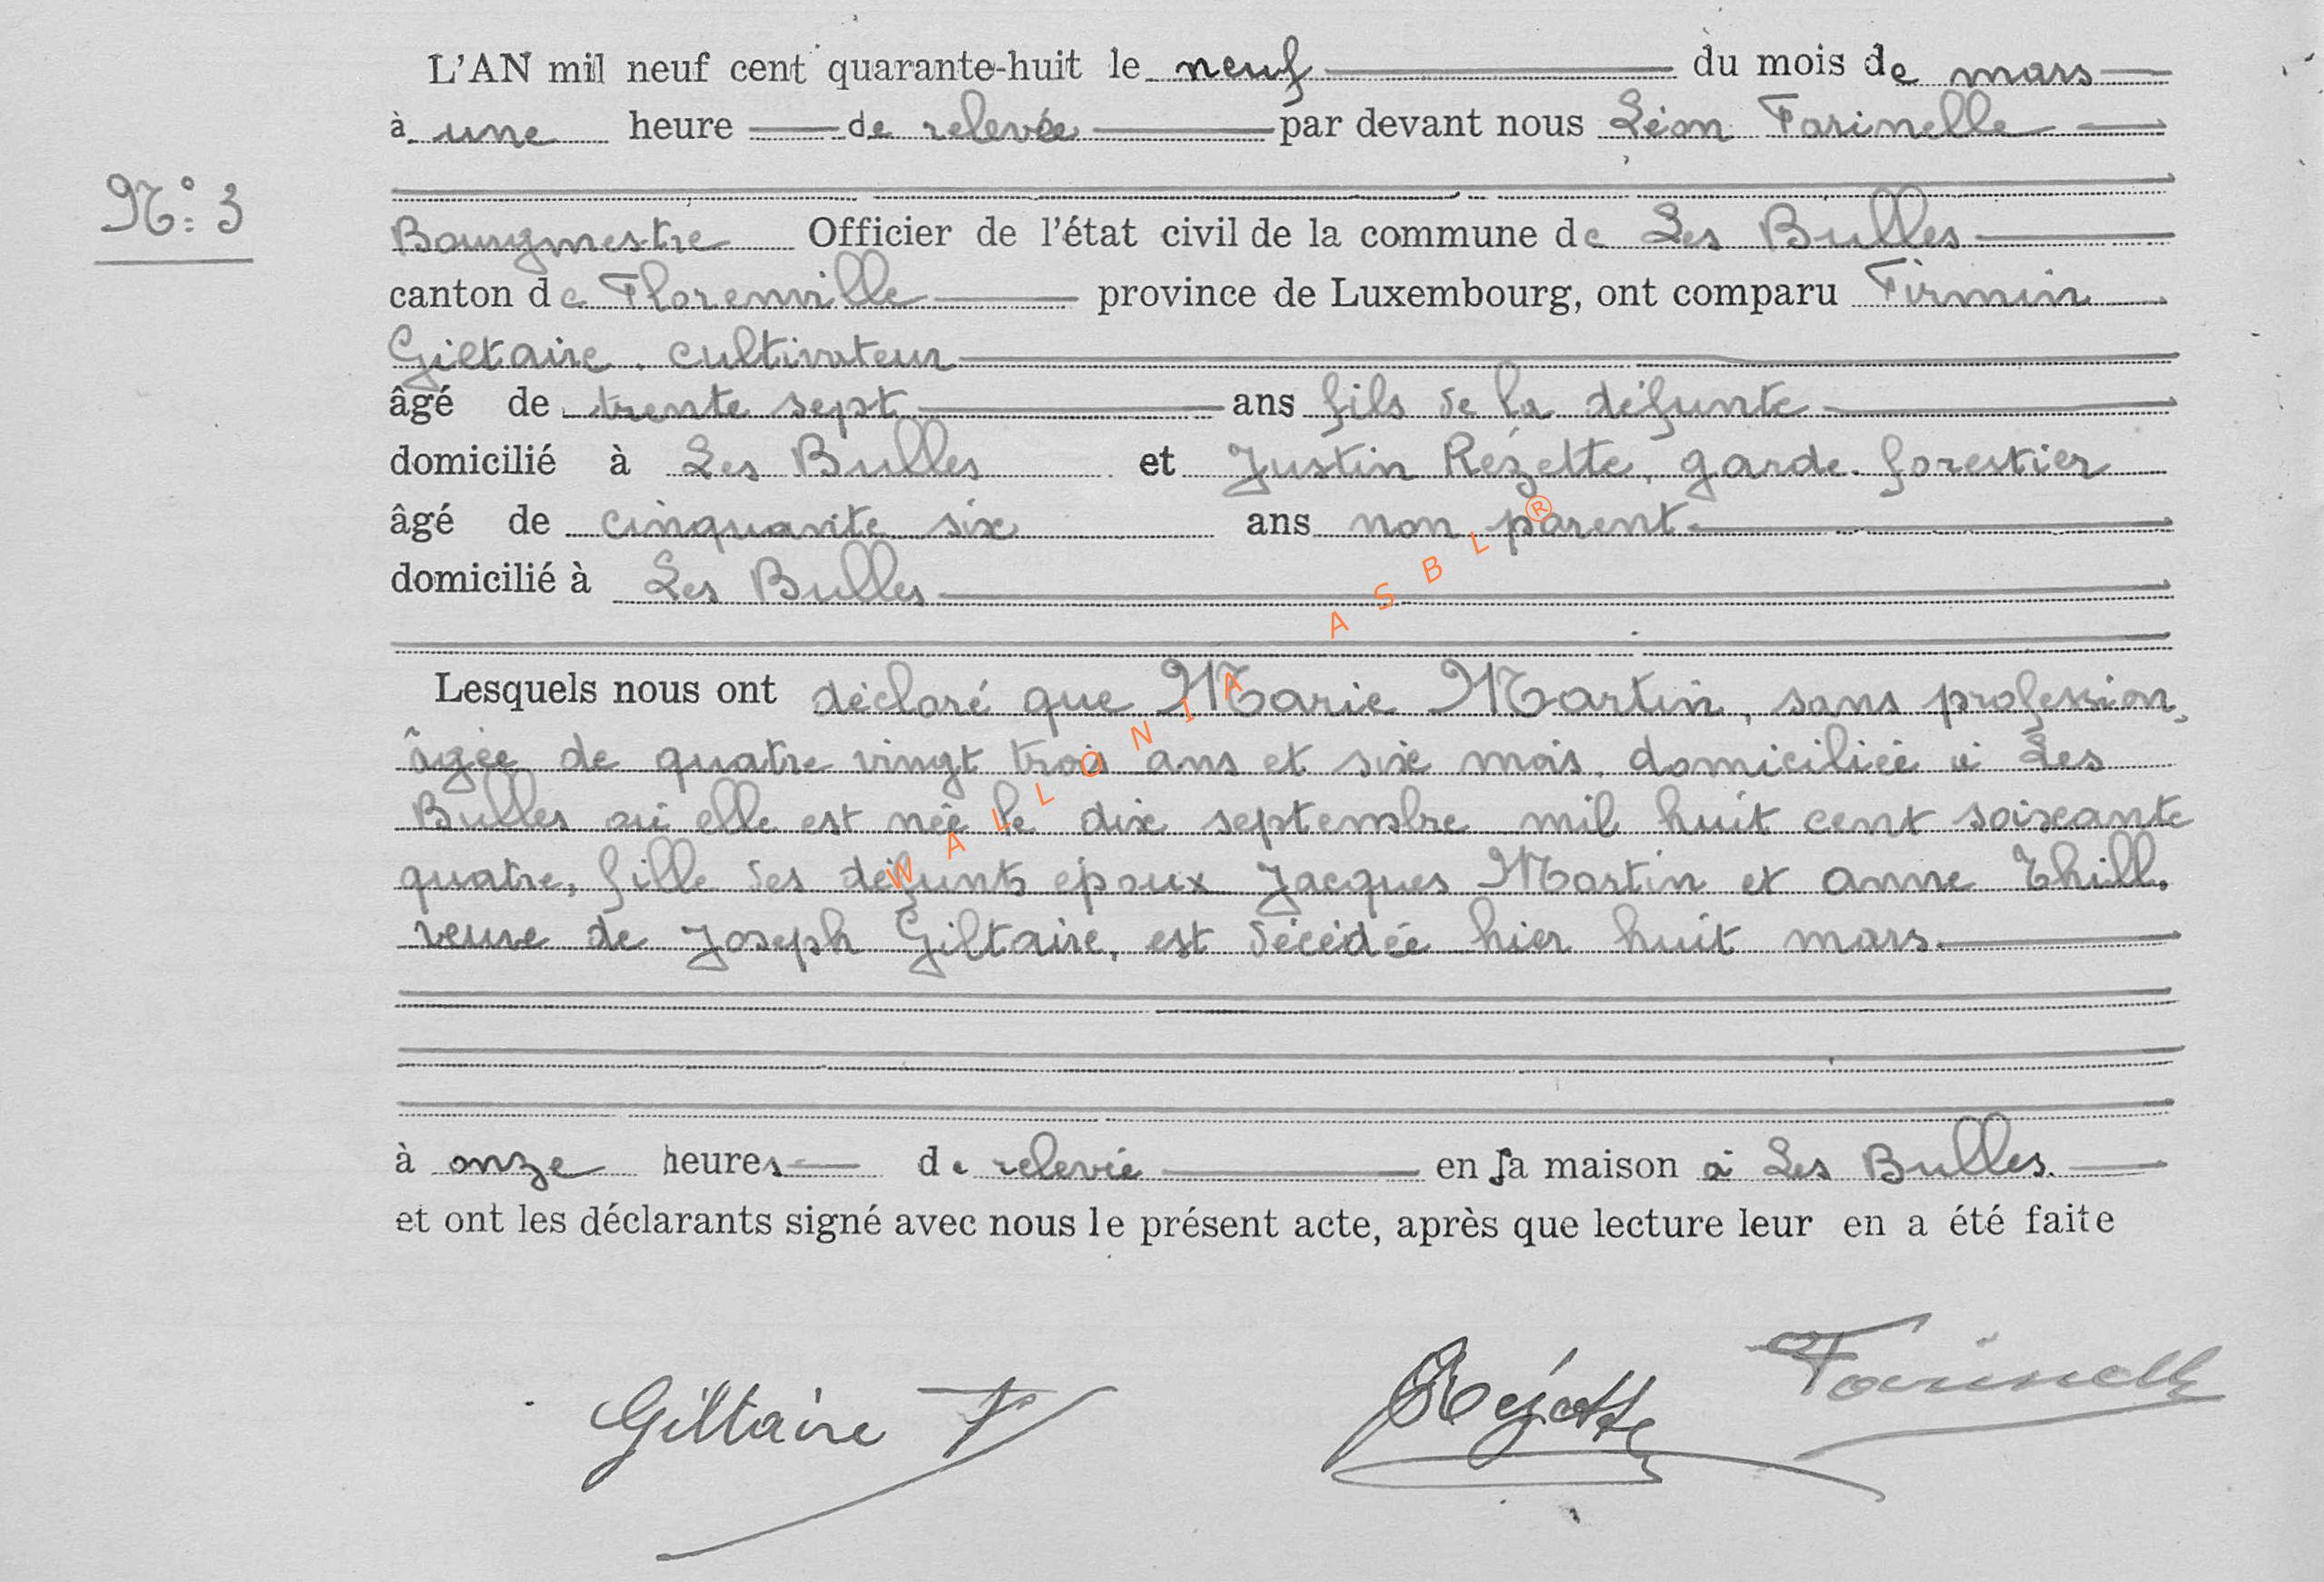 L'AN mil neuf cent quarante-huit le neuf du mois de mars
à une heure de relevée par devant nous Léon Farinelle
N° 3
Bourgmestre Officier de l'état civil de la commune de Les Bulles
canton de Florenville province de Luxembourg, ont comparu Firmin
Giltaire, cultivateur
âgé de trente sept ans fils de la défunte
domicilié à Les Bulles et Justin Rézette, garde-forestier
âgé de cinquante six ans non parent
domicilié à Les Bulles
Lesquels nous ont déclaré que Marie Martin, sans profession,
âgée de quatre vingt trois ans et six mois, domiciliée à Les
Bulles où elle est née le dix septembre mil huit cent soixante
quatre, fille des défunts époux Jacques Martin et Anne Thill,
veuve de Joseph Giltaire, est décédée hier huit mars.
à onze heures de relevée en sa maison à Les Bulles.
et ont les déclarants signé avec nous le présent acte, après que lecture leur en a été faite
Giltaire F Rézette Farinelle
WALLONIA ASBL ®